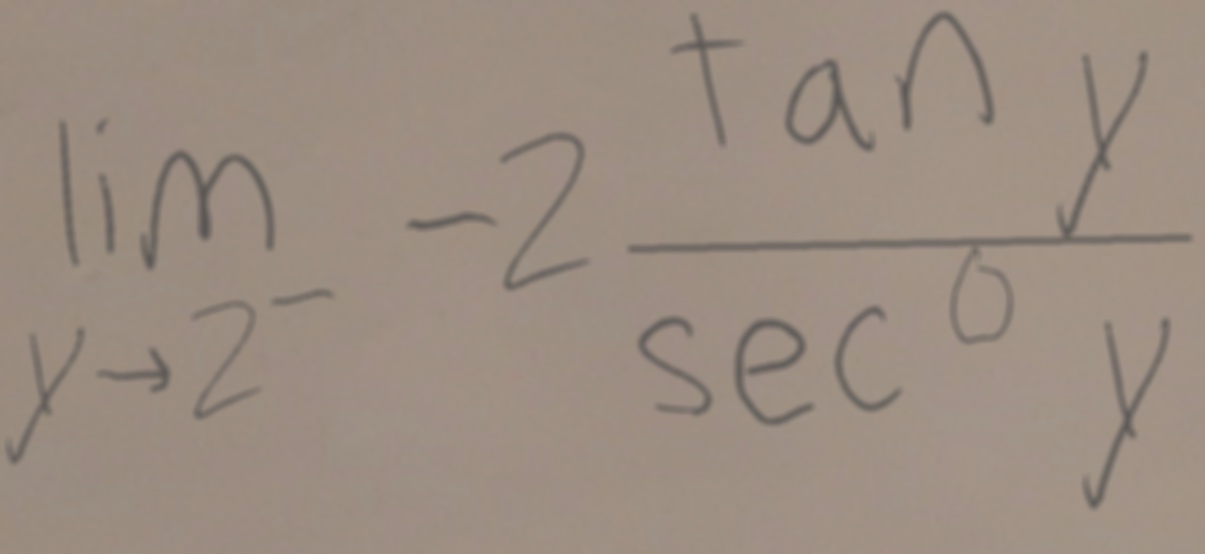 \lim_{y \to 2^-} -2 \frac{\tan y}{\sec^0 y}